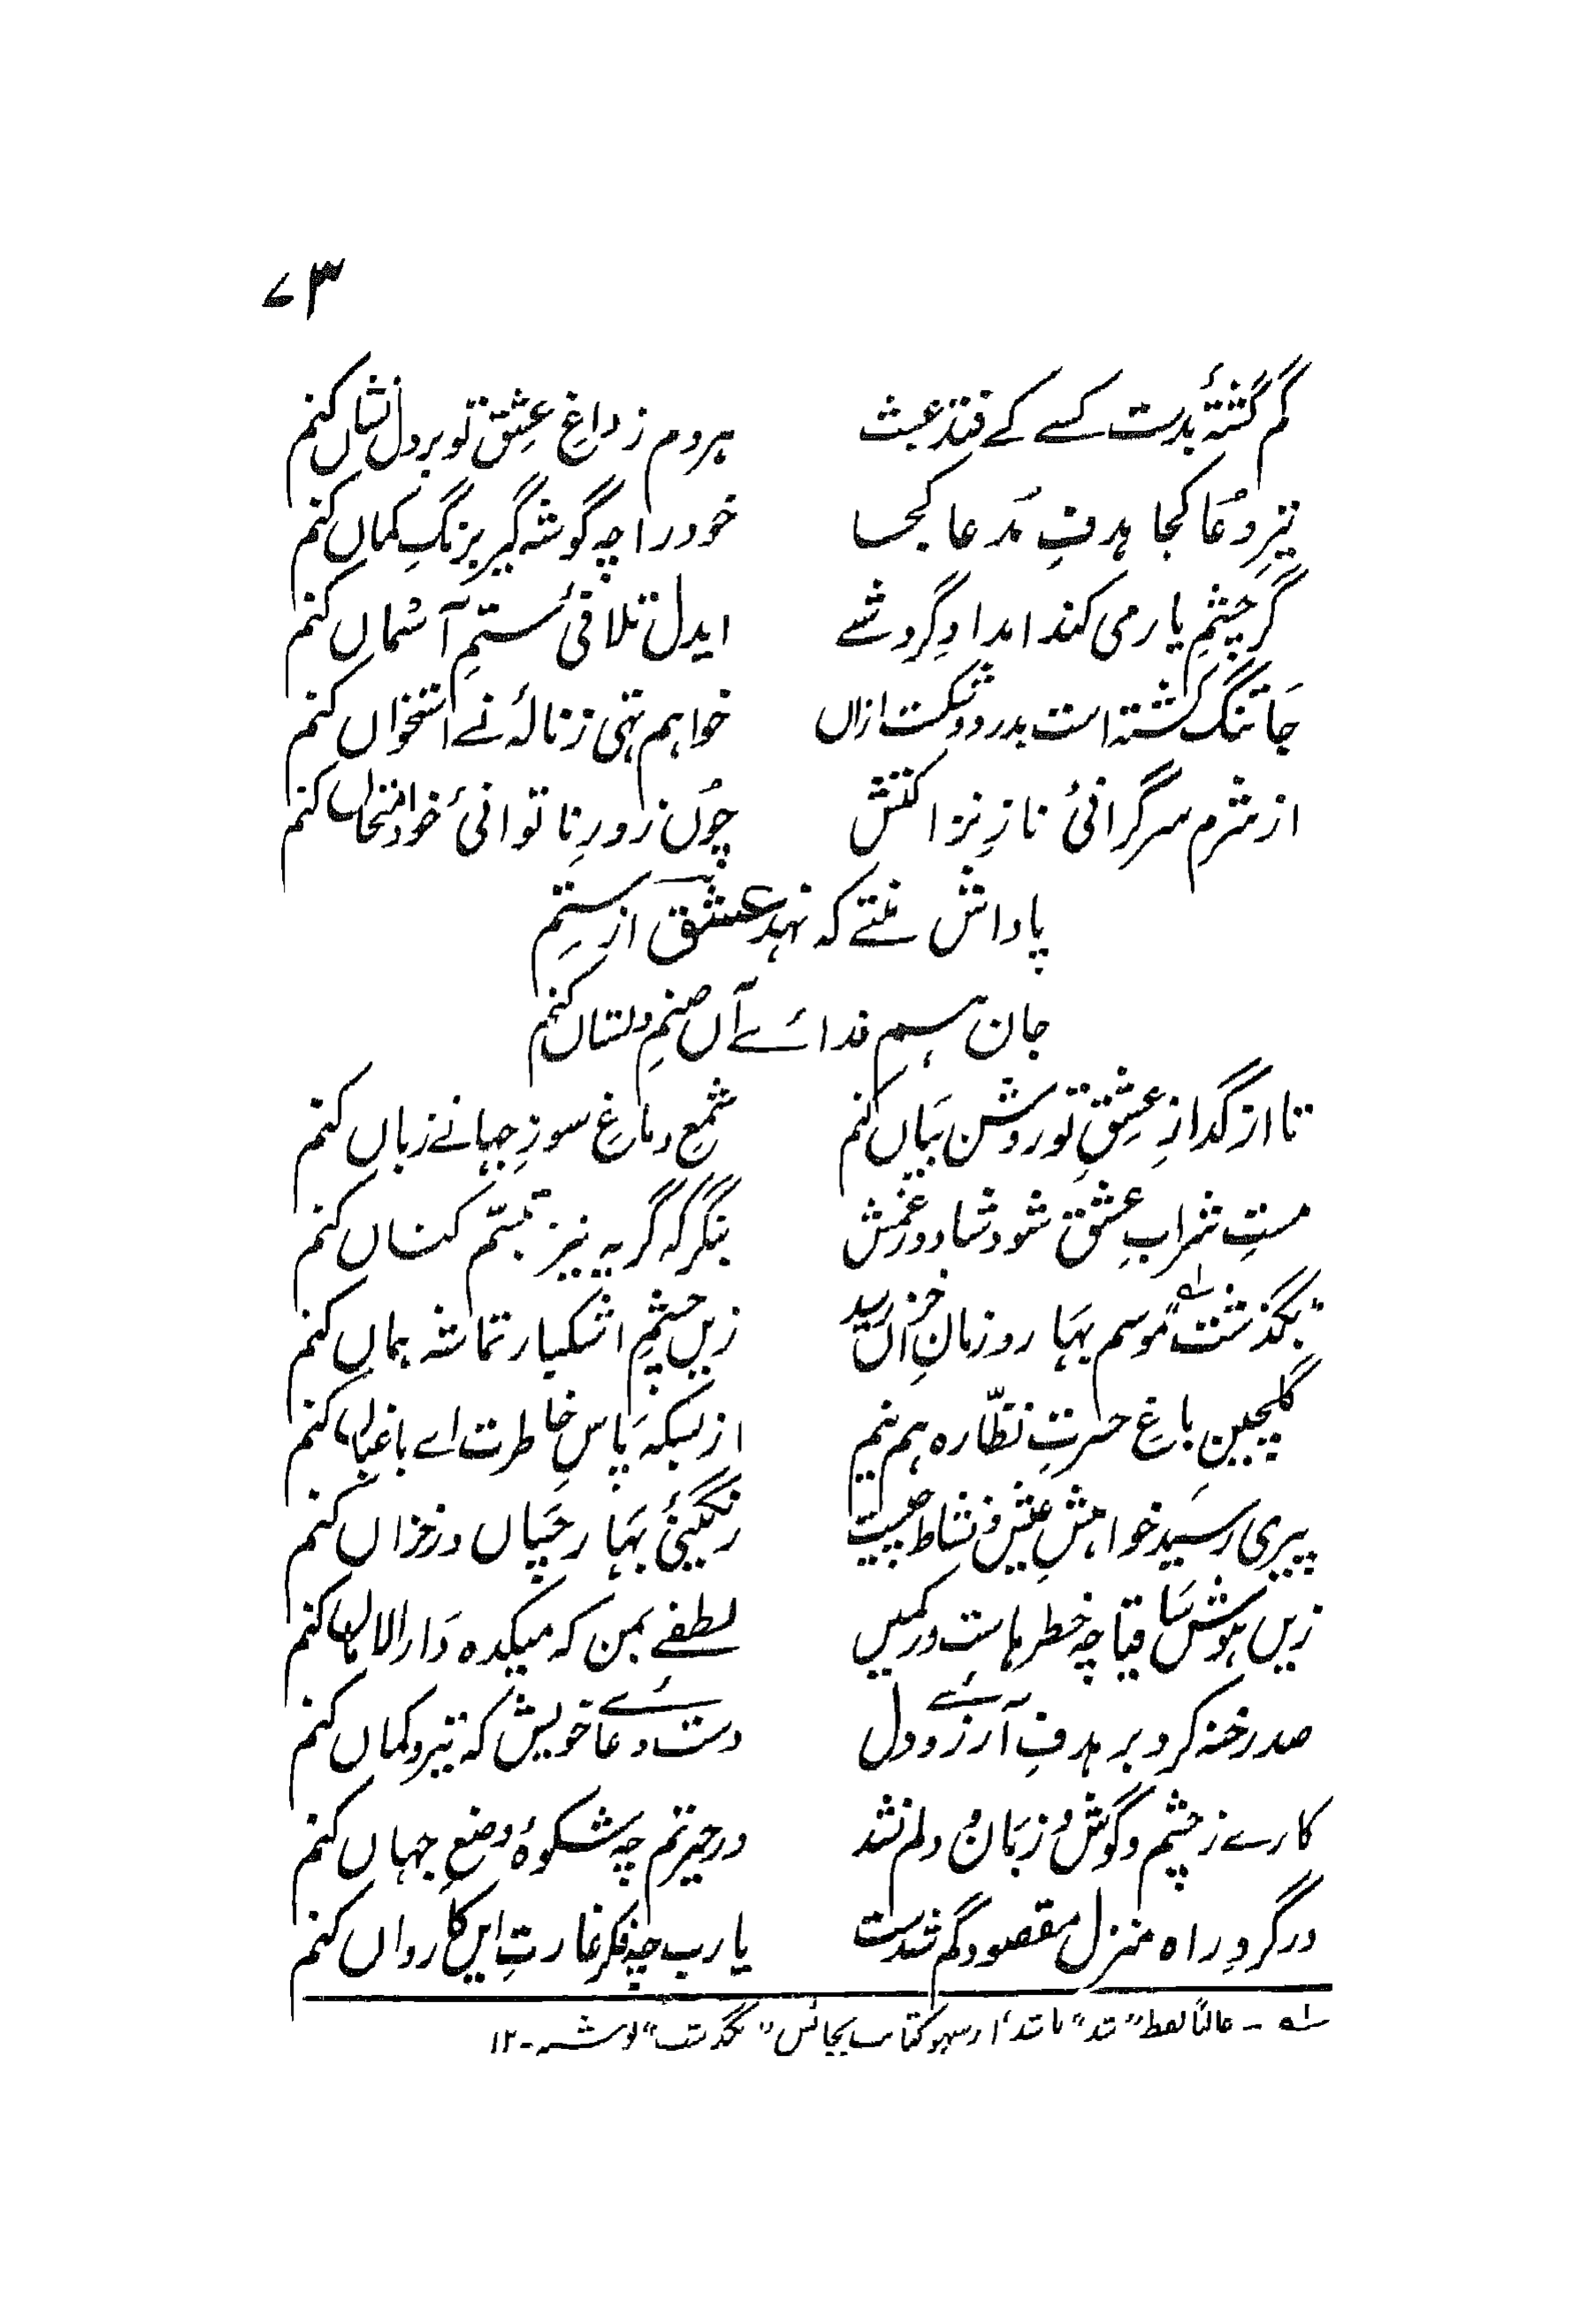 ۷۳
گم گشتۂ بدست کسے کے فتد عبث ہردم ز داغِ عشق تو بر دل نشاں کنم
تیرِ دُعا کجا ہدفِ مُدعا کجا خود را چہ گوشہ گیر برنگِ کماں کنم
گر چشمِ یار می کند امدادِ گردشے ایدل تلافیٔ ستمِ آسماں کنم
جا تنگ گشتہ است بدرد و شکست ازاں خواہم تہی ز نالۂ نے استخواں کنم
از شرم سرگرانیٔ نازِ نزاکتش چوں زورِ ناتوانیٔ خود امتحاں کنم
پاداش منتے کہ نہد عشق از ستم
جان ہم فدائے آں صنمِ دلستاں کنم
تا از گدازِ عشقِ تو روشن بیاں کنم شمعِ دماغِ سوزِ جہانے زباں کنم
مستِ شرابِ عشق شود شاد در غمش بنگر کہ گریہ نیز تبسّم کناں کنم
بگذشت ؎۱ موسم بہار و زمانِ خزاں رسید زیں چشمِ اشکبار تماشہ ہماں کنم
گلچینِ باغِ حسرتِ نظّارہ ہم نیم از بسکہ پاسِ خاطرت اے باغباں کنم
پیری رسید خواہشِ عیش و نشاط چیست رنگینیٔ بہار چساں در خزاں کنم
زیں ہوش ساقیا چہ خطرہاست در کمیں لطفے بمن کہ میکدہ دارالاماں کنم
صد رخنہ کرد بر ہدفِ آرزوئے دل دست دعائے خویش کہ تیر و کماں کنم
کارے ز چشم و گوش و زبان و دلم نشد در حیرتم چہ شکوۂ وضعِ جہاں کنم
در گردِ راہ منزلِ مقصود گم شدست یارب چہ فکرِ غارتِ ایں کارواں کنم
؎۱ - غالباً لفظ "شد" باشد از سہو کتابت بجائش "بگذشت" نوشتہ - ۱۲